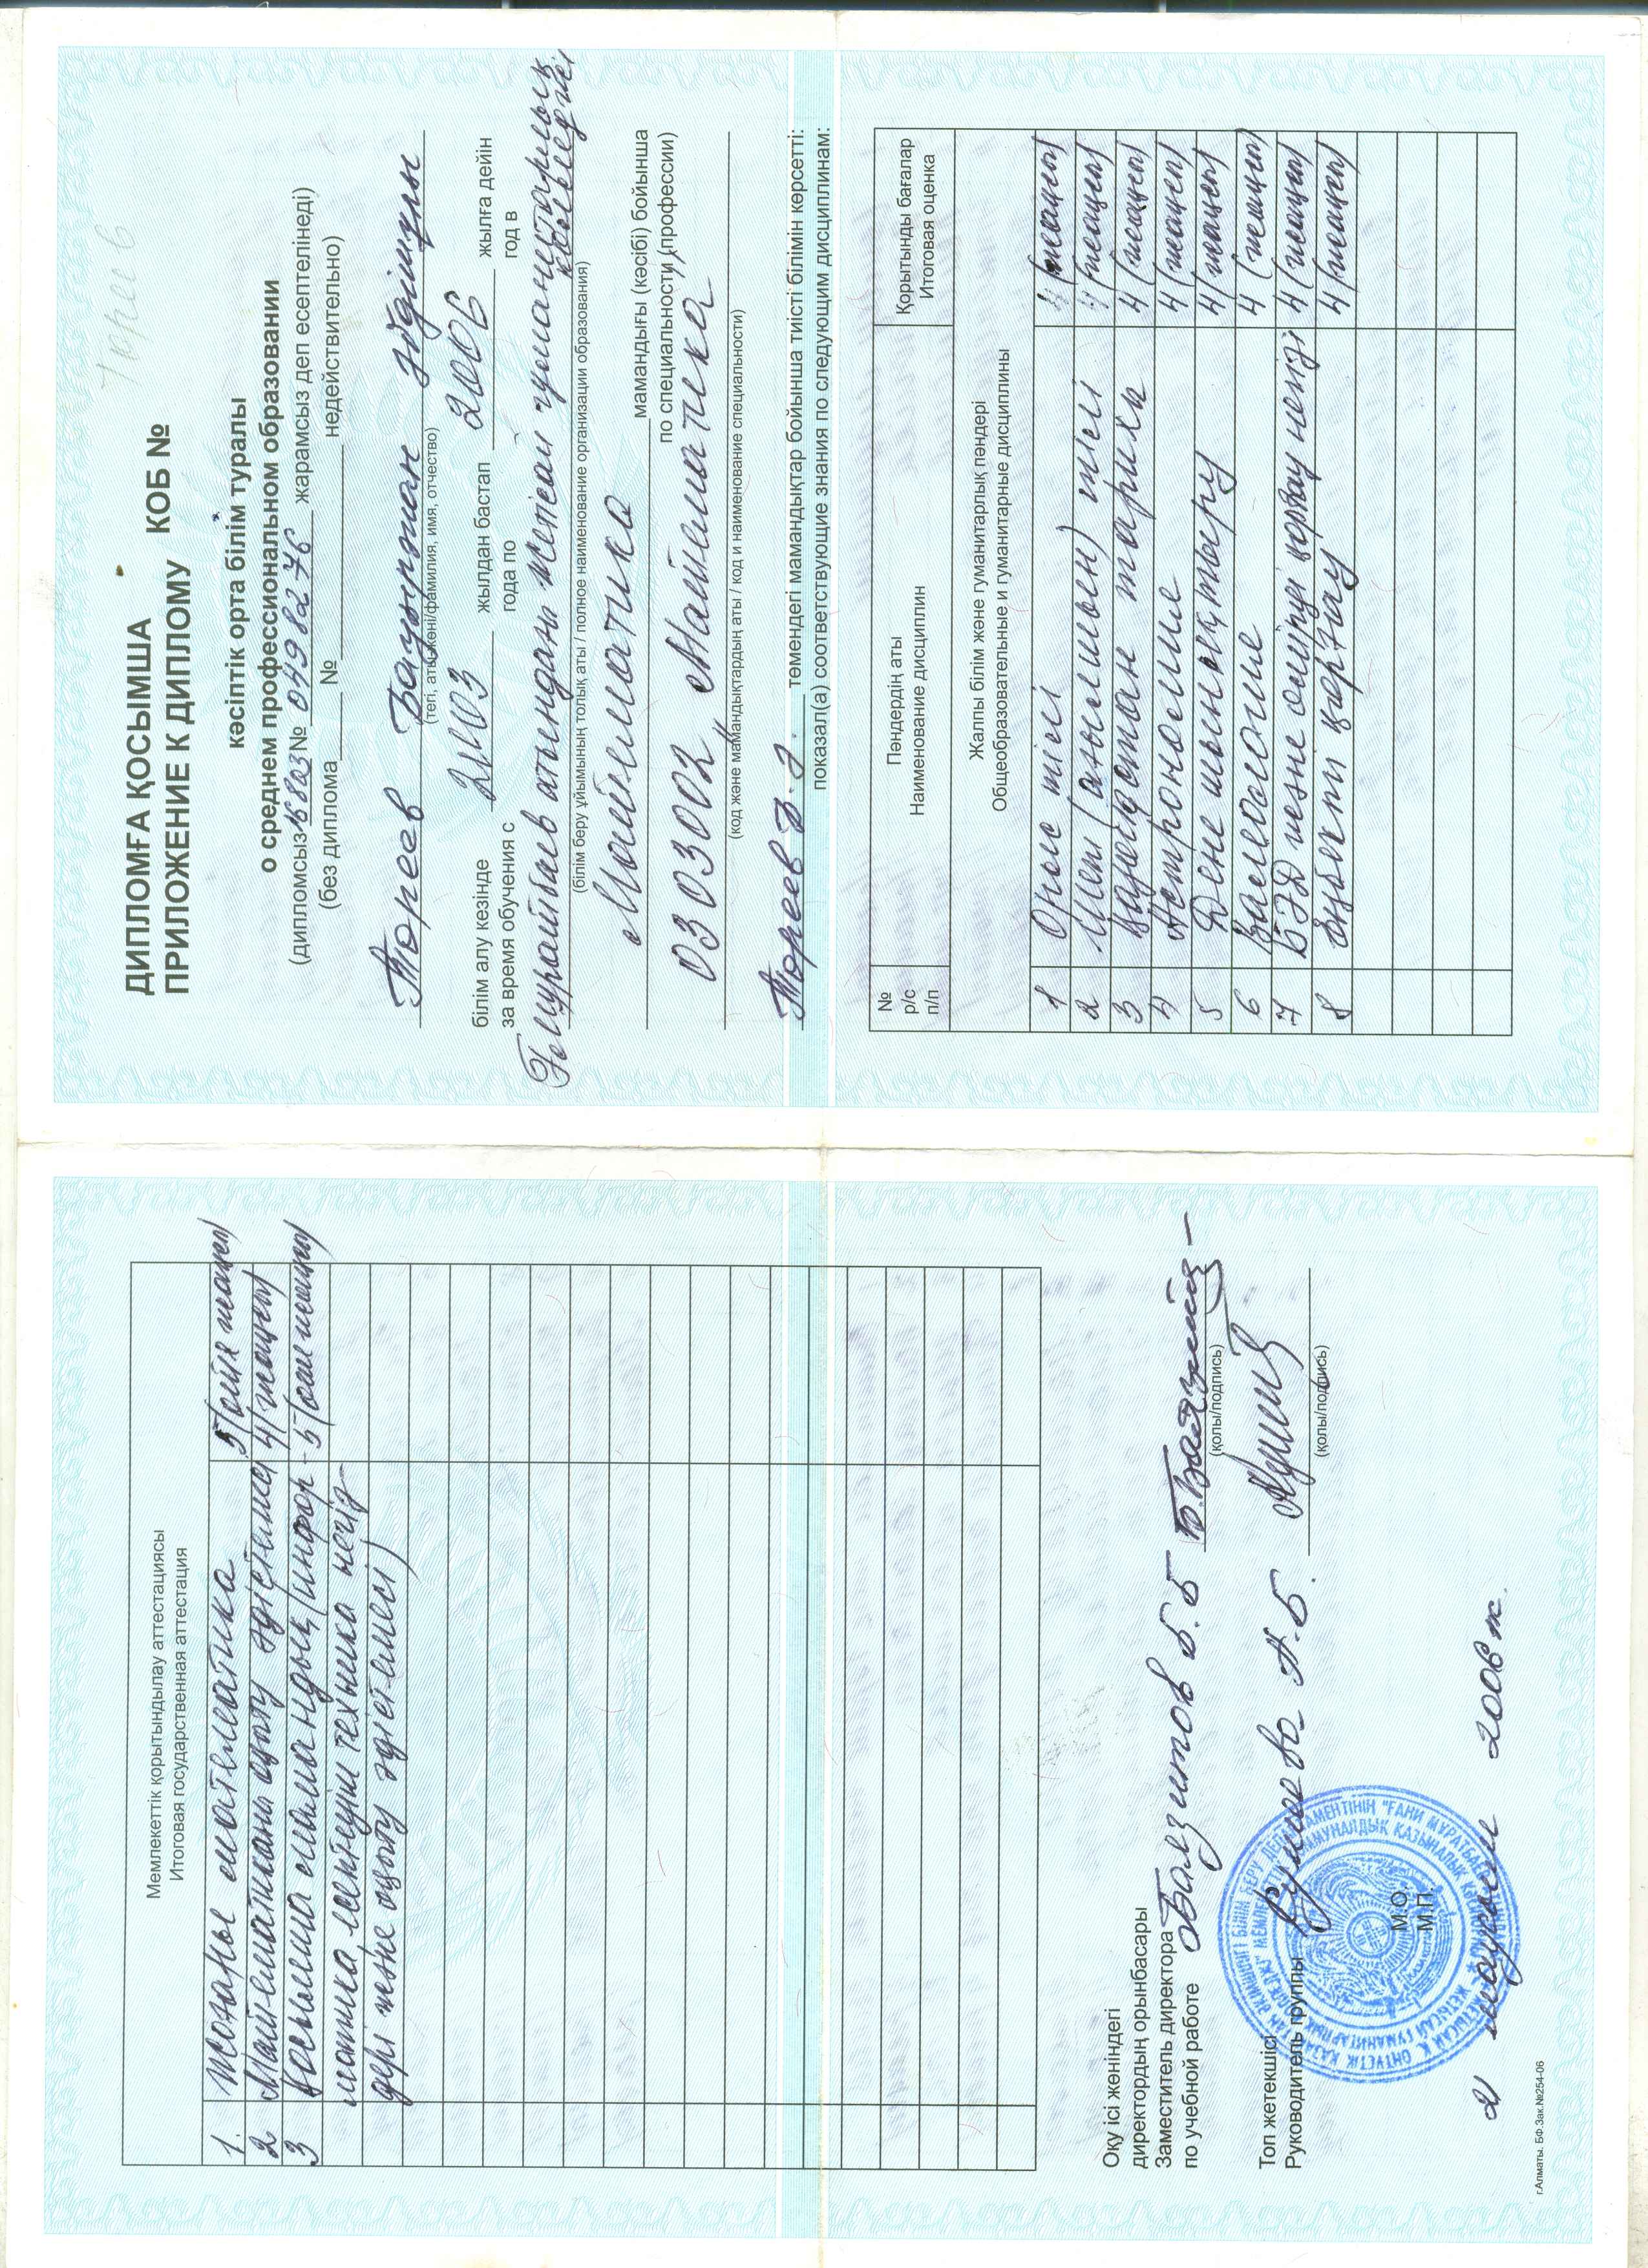 Төреев
ДИПЛОМҒА ҚОСЫМША
ПРИЛОЖЕНИЕ К ДИПЛОМУ КОБ №
кәсіптік орта білім туралы
о среднем профессиональном образовании
(дипломсыз № 0498276 жарамсыз деп есептелінеді)
(без диплома № недействительно)
Төреев Бауыржан Әбдіұлы
(тегі, аты-жөні/фамилия, имя, отчество)
білім алу кезінде 2003 жылдан бастап 2006 жылға дейін
за время обучения с года по год в
Ғ.Мұратбаев атындағы Жетісай гуманитарлық
колледжі
(білім беру ұйымының толық аты / полное наименование организации образования)
Математика мамандығы (кәсібі) бойынша
по специальности (профессии)
0303002 "Математика"
(код және мамандықтардың аты / код и наименование специальности)
Төреев Б. Ә. төмендегі мамандықтар бойынша тиісті білімін көрсетті:
показал(а) соответствующие знания по следующим дисциплинам:
№ р/с п/п Пәндердің аты Қорытынды бағалар
Наименование дисциплин Итоговая оценка
Жалпы білім және гуманитарлық пәндері
Общеобразовательные и гуманитарные дисциплины
1 Орыс тілі 4 (жақсы)
2 Шет (ағылшын) тілі 4 (жақсы)
3 Қазақстан тарихы 4 (жақсы)
4 Астрономия 4 (жақсы)
5 Дене шынықтыру 4 (жақсы)
6 Валеология 4 (жақсы)
7 БӘД және өмірді қорғау негізі 4 (жақсы)
8 Еңбекті қорғау 4 (жақсы)
Мемлекеттік қорытындылау аттестациясы
Итоговая государственная аттестация
1. Жоғары математика 5 (өте жақсы)
2 Математиканы оқыту әдістемесі 4 (жақсы)
3 Қосымша мамандық (инфор- 5 (өте жақсы)
матика есептеуіш техника негіз-
дері және оқыту әдістемесі)
Оқу ісі жөніндегі
директордың орынбасары
Заместитель директора Баязитов Б.Б
по учебной работе (қолы/подпись)
Топ жетекшісі
Руководитель группы А.Б.
(қолы/подпись)
М.О.
М.П.
21 маусым 2006 ж.
г.Алматы. БФ.Зак.№254-06